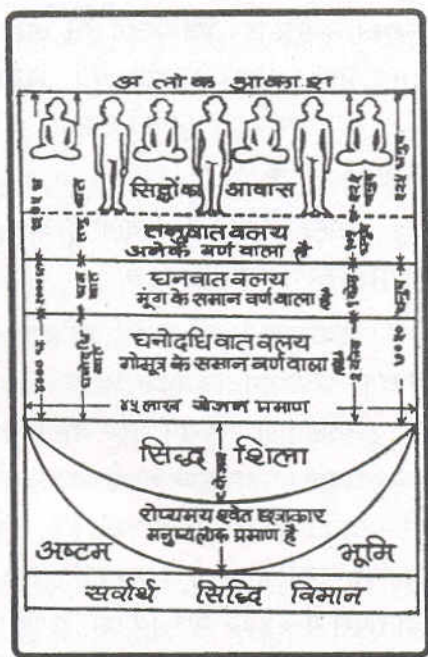 अ लोक आकाश
सिद्धों का आवास
तनुवात वलय
अनेक वर्ण वाला है
घनवात वलय
मूंग के समान वर्ण वाला है
घनोदधि वात वलय
गोमूत्र के समान वर्ण वाला है
४५ लाख योजन प्रमाण
सिद्ध शिला
रोप्यमय श्वेत छत्राकार
मनुष्यलोक प्रमाण है
अष्टम भूमि
सर्वार्थ सिद्धि विमान
तनु वात
घन वात
घनोदधि वात
५२५ धनुष
७०५० धनुष